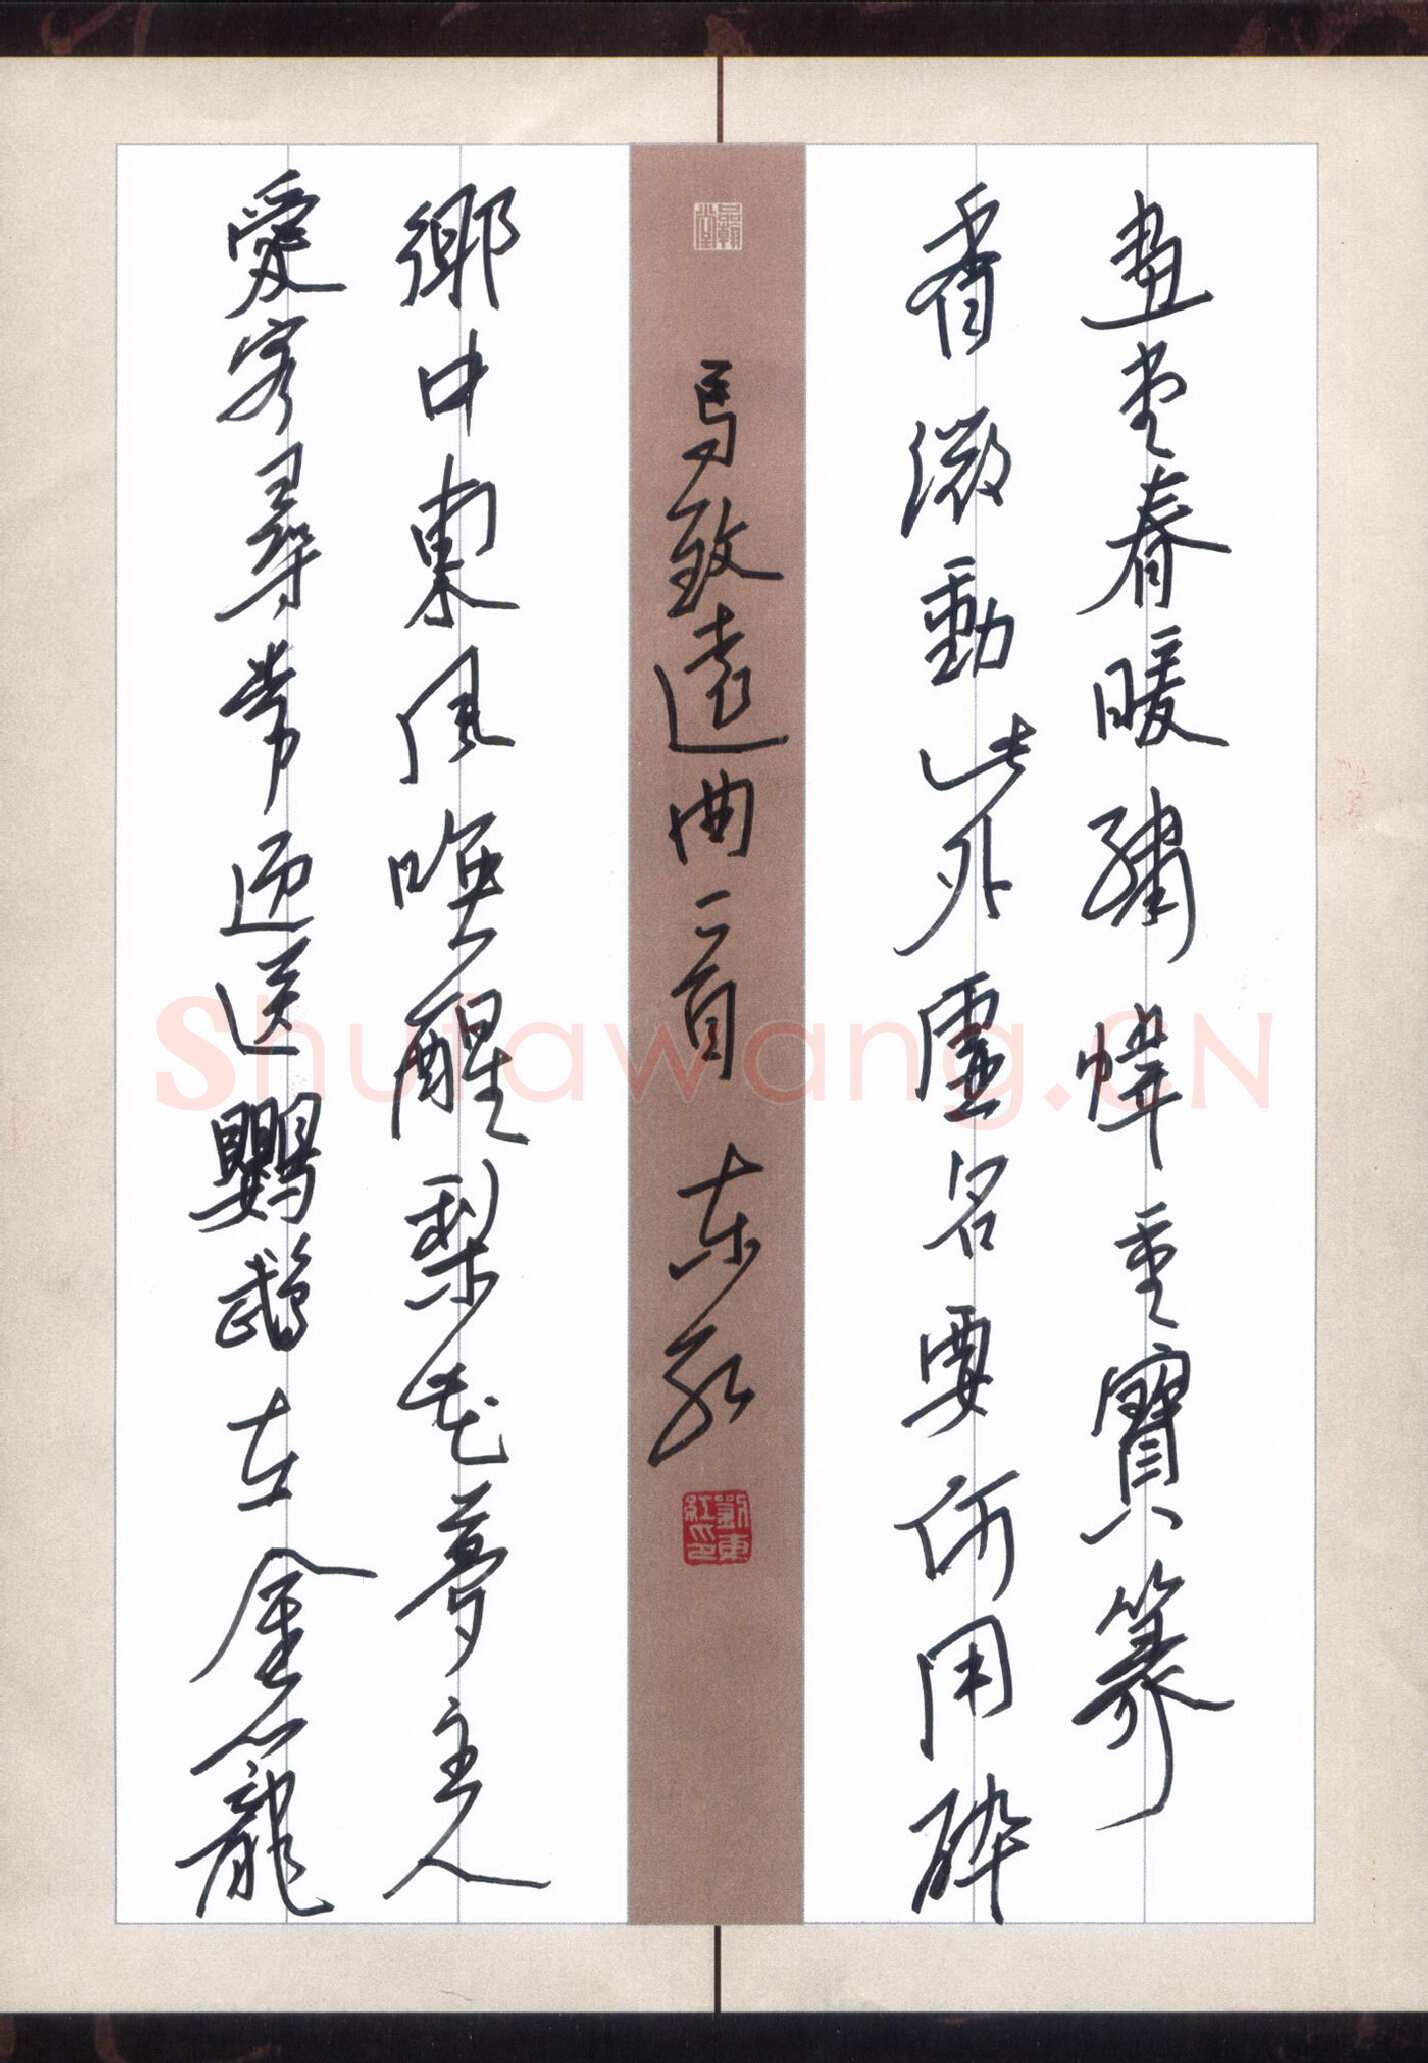 畫堂春暖繡幃重寶篆
香微動此外虛名要何用醉
馬致遠曲二首 东红
劉東紅印
鄉中東風喚醒梨花夢主人
愛客尋常迎送鸚鵡在金籠
Shufawang.CN